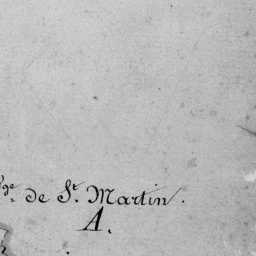 ge. de St. Martin.
A.